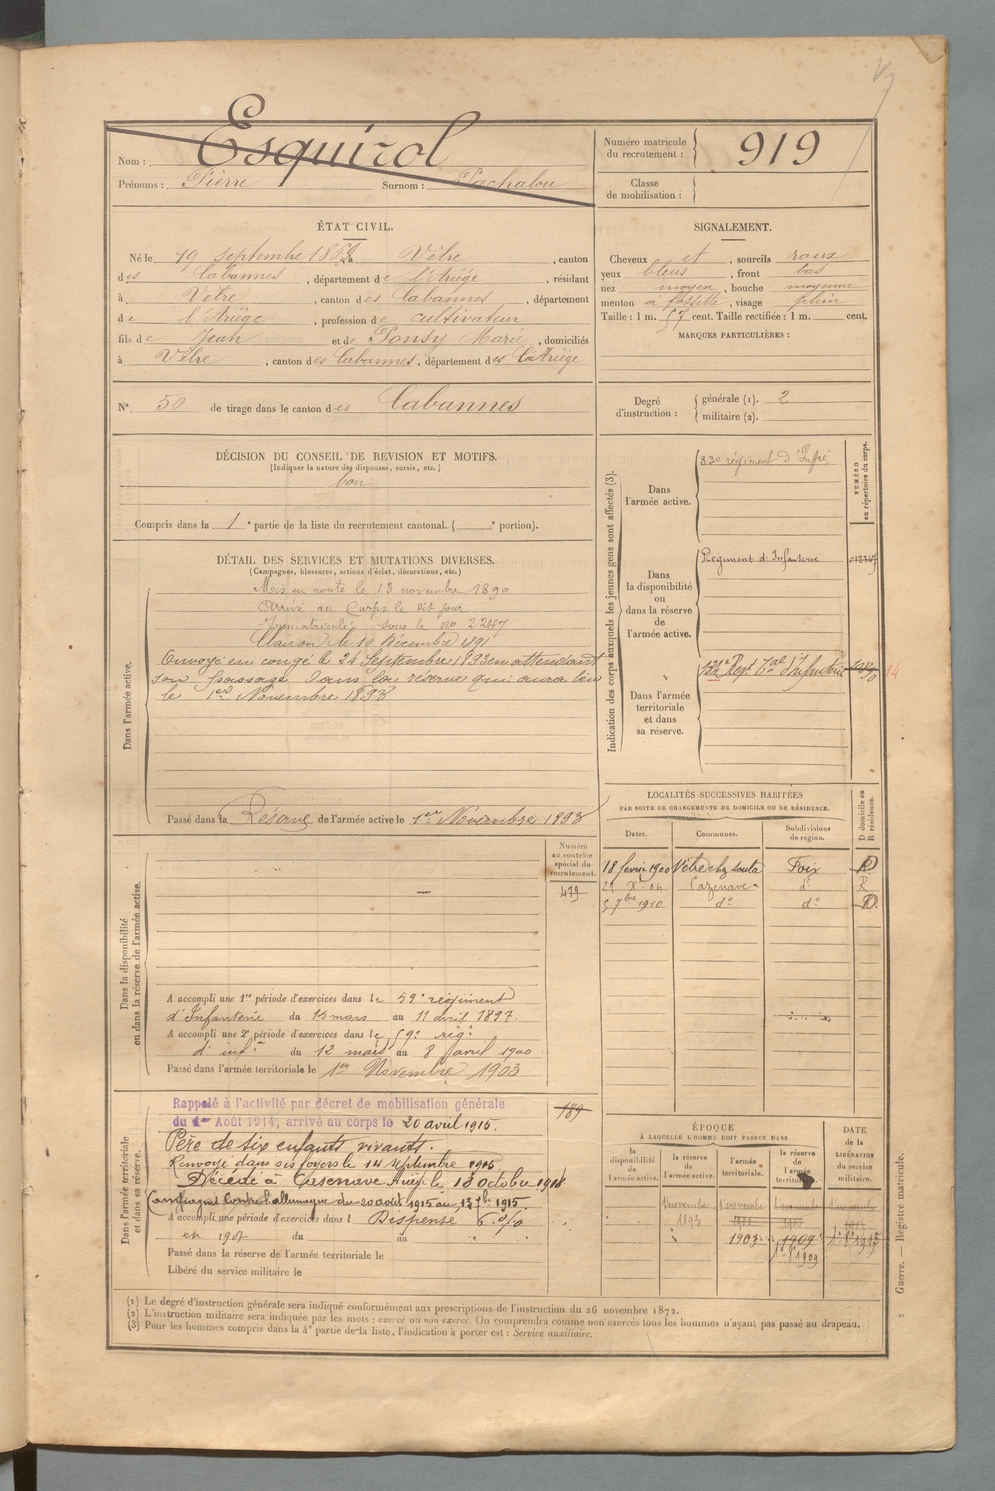 Nom : Esquirol
Prénoms : Pierre Surnom : Pachalou
Numéro matricule du recrutement : 919
Classe de mobilisation :
ÉTAT CIVIL.
Né le 19 septembre 1869, à Vèbre, canton
des Cabannes, département de l'Ariège, résidant
à Vèbre, canton des Cabannes, département
de l'Ariège, profession de cultivateur
fils de Jean et de Ponsy Marie, domiciliés
à Vèbre, canton des Cabannes, département de l'Ariège
SIGNALEMENT.
Cheveux et, sourcils roux
yeux bleus, front bas
nez moyen, bouche moyenne
menton à fossette, visage plein
Taille : 1 m. 57 cent. Taille rectifiée : 1 m. cent.
MARQUES PARTICULIÈRES :
N° 50 de tirage dans le canton des Cabannes
Degré d'instruction : générale (1). 2
militaire (2).
DÉCISION DU CONSEIL DE REVISION ET MOTIFS.
(Indiquer la nature des dispenses, sursis, etc.)
bon
Compris dans la 1e partie de la liste du recrutement cantonal. ( e portion).
DÉTAIL DES SERVICES ET MUTATIONS DIVERSES.
(Campagnes, blessures, actions d'éclat, décorations, etc.)
Dans l'armée active.
Mis en route le 13 novembre 1890
Arrivé au Corps le dit jour
Immatriculé sous le no 2247
Clairon le 10 Décembre 1891
Envoyé en congé le 21 Septembre 1893 en attendant
son passage dans la réserve qui aura lieu
le 1er Novembre 1893
Passé dans la Réserve de l'armée active le 1er Novembre 1893
Indication des corps auxquels les jeunes gens sont affectés (3).
NUMÉRO au répertoire du corps.
Dans l'armée active.
83e régiment d'Infie
Dans la disponibilité ou dans la réserve de l'armée active.
Régiment d'Infanterie
Dans l'armée territoriale et dans sa réserve.
Regt Tal d'Infanterie
14
LOCALITÉS SUCCESSIVES HABITÉES
PAR SUITE DE CHANGEMENTS DE DOMICILE OU DE RÉSIDENCE.
Dates. Communes. Subdivisions de région. D domicile ou R résidence.
18 février 1900 Vèbre Foix D
Cazenave do R
5 7bre 1910 do do D
Dans la disponibilité ou dans la réserve de l'armée active.
Numéro au contrôle spécial du recrutement.
479
A accompli une 1re période d'exercices dans le 59e régiment
d'Infanterie du 15 mars au 11 avril 1897.
A accompli une 2e période d'exercices dans le 59e régt
d'inf. du 12 mars au 8 avril 1900
Passé dans l'armée territoriale le 1er Novembre 1903
Dans l'armée territoriale et dans sa réserve.
Rappelé à l'activité par décret de mobilisation générale
du 1er Août 1914, arrivé au corps le 20 avril 1915.
189
Père de six enfants vivants.
Renvoyé dans ses foyers le 14 septembre 1915
Décédé à Casenave Ariège le 18 octobre 1918
Campagnes Contre l'allemagne du 20 août 1915 au 13 7bre 1915
A accompli une période d'exercices dans l Dispensé 6 o/o
en 1907 du au
Passé dans la réserve de l'armée territoriale le
Libéré du service militaire le
ÉPOQUE
À LAQUELLE L'HOMME DOIT PASSER DANS
la disponibilité de l'armée active. la réserve de l'armée active. l'armée territoriale. la réserve de l'armée territoriale. DATE de la LIBÉRATION du service militaire.
Novembre 1893
1903 1909
(1) Le degré d'instruction générale sera indiqué conformément aux prescriptions de l'instruction du 26 novembre 1872.
(2) L'instruction militaire sera indiquée par les mots : exercé ou non exercé. On comprendra comme non exercés tous les hommes n'ayant pas passé au drapeau.
(3) Pour les hommes compris dans la 4e partie de la liste, l'indication à porter est : Service auxiliaire.
Guerre. — Registre matricule.